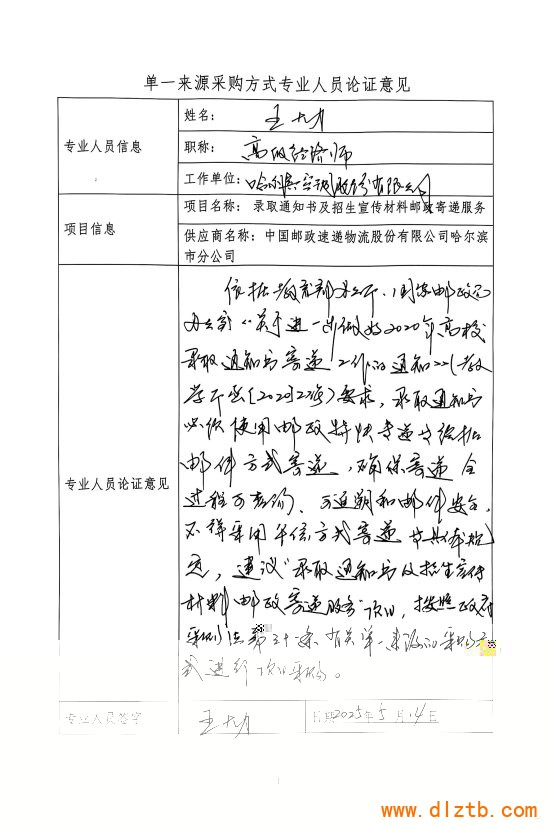 单一来源采购方式专业人员论证意见
专业人员信息
姓名：
职称：高级经济师
工作单位：哈尔滨空调股份有限公司
项目信息
项目名称：录取通知书及招生宣传材料邮政寄递服务
供应商名称：中国邮政速递物流股份有限公司哈尔滨
市分公司
专业人员论证意见
依据教育部办公厅、国家邮政局
办公室《关于进一步做好2020年高校
录取通知书寄递工作的通知》(教
学厅函[2020]22号)要求，录取通知书
必须使用邮政特快专递
邮件方式寄递，确保寄递全
过程可查询、可追溯和邮件安全，
不得采用平信方式寄递
建议"录取通知书及招生宣传
材料邮政寄递服务"项目，按照政府
采购法第三十一条有关单一来源的采购方
式进行项目采购。
专业人员签字
日期2025年5月14日
www.dlztb.com